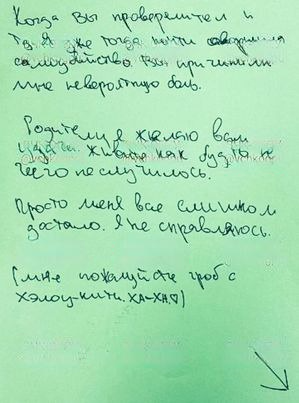 Когда вы
я уже тогда почти совершила
самоубийство. Вы причинили
мне невероятную боль.
Родители, я желаю вам
удачи. Живите как будто
чего не случилось.
Просто меня все слишком
достало. Я не справляюсь.
(мне пожалуйста гроб с
хэлоу-кити. ХА-ХА♡)